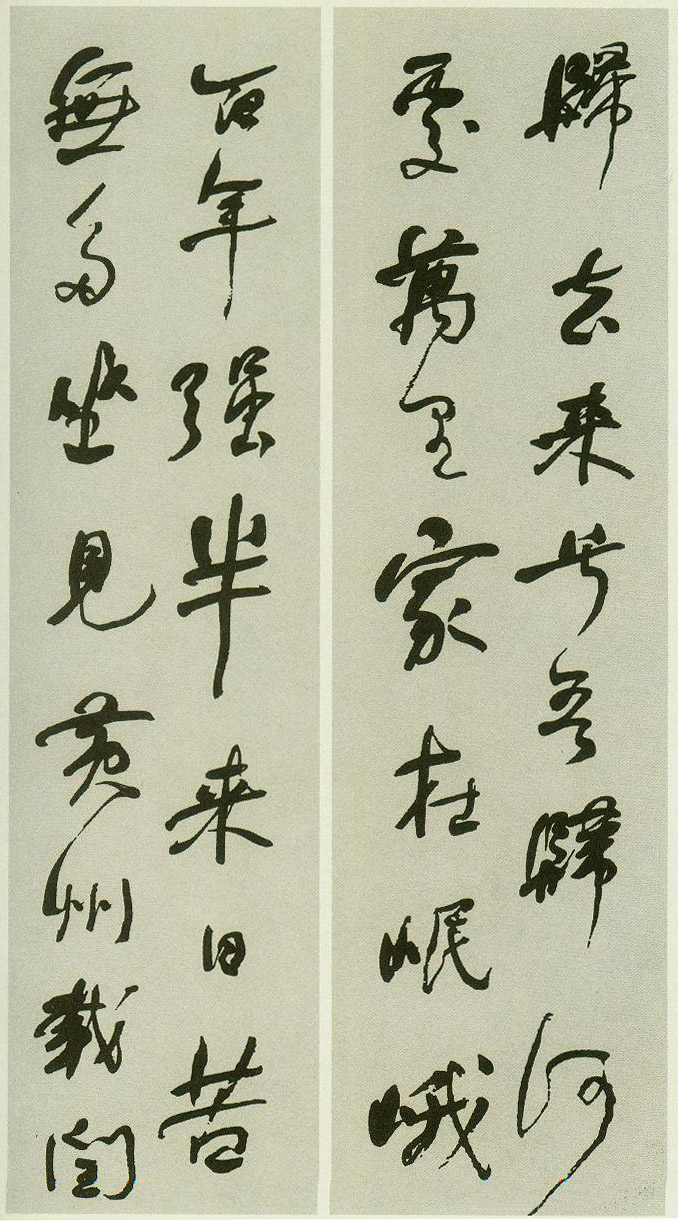 歸去来兮吾歸何
處萬里家在岷峨
百年强半来日苦
無多坐見黄州載閏